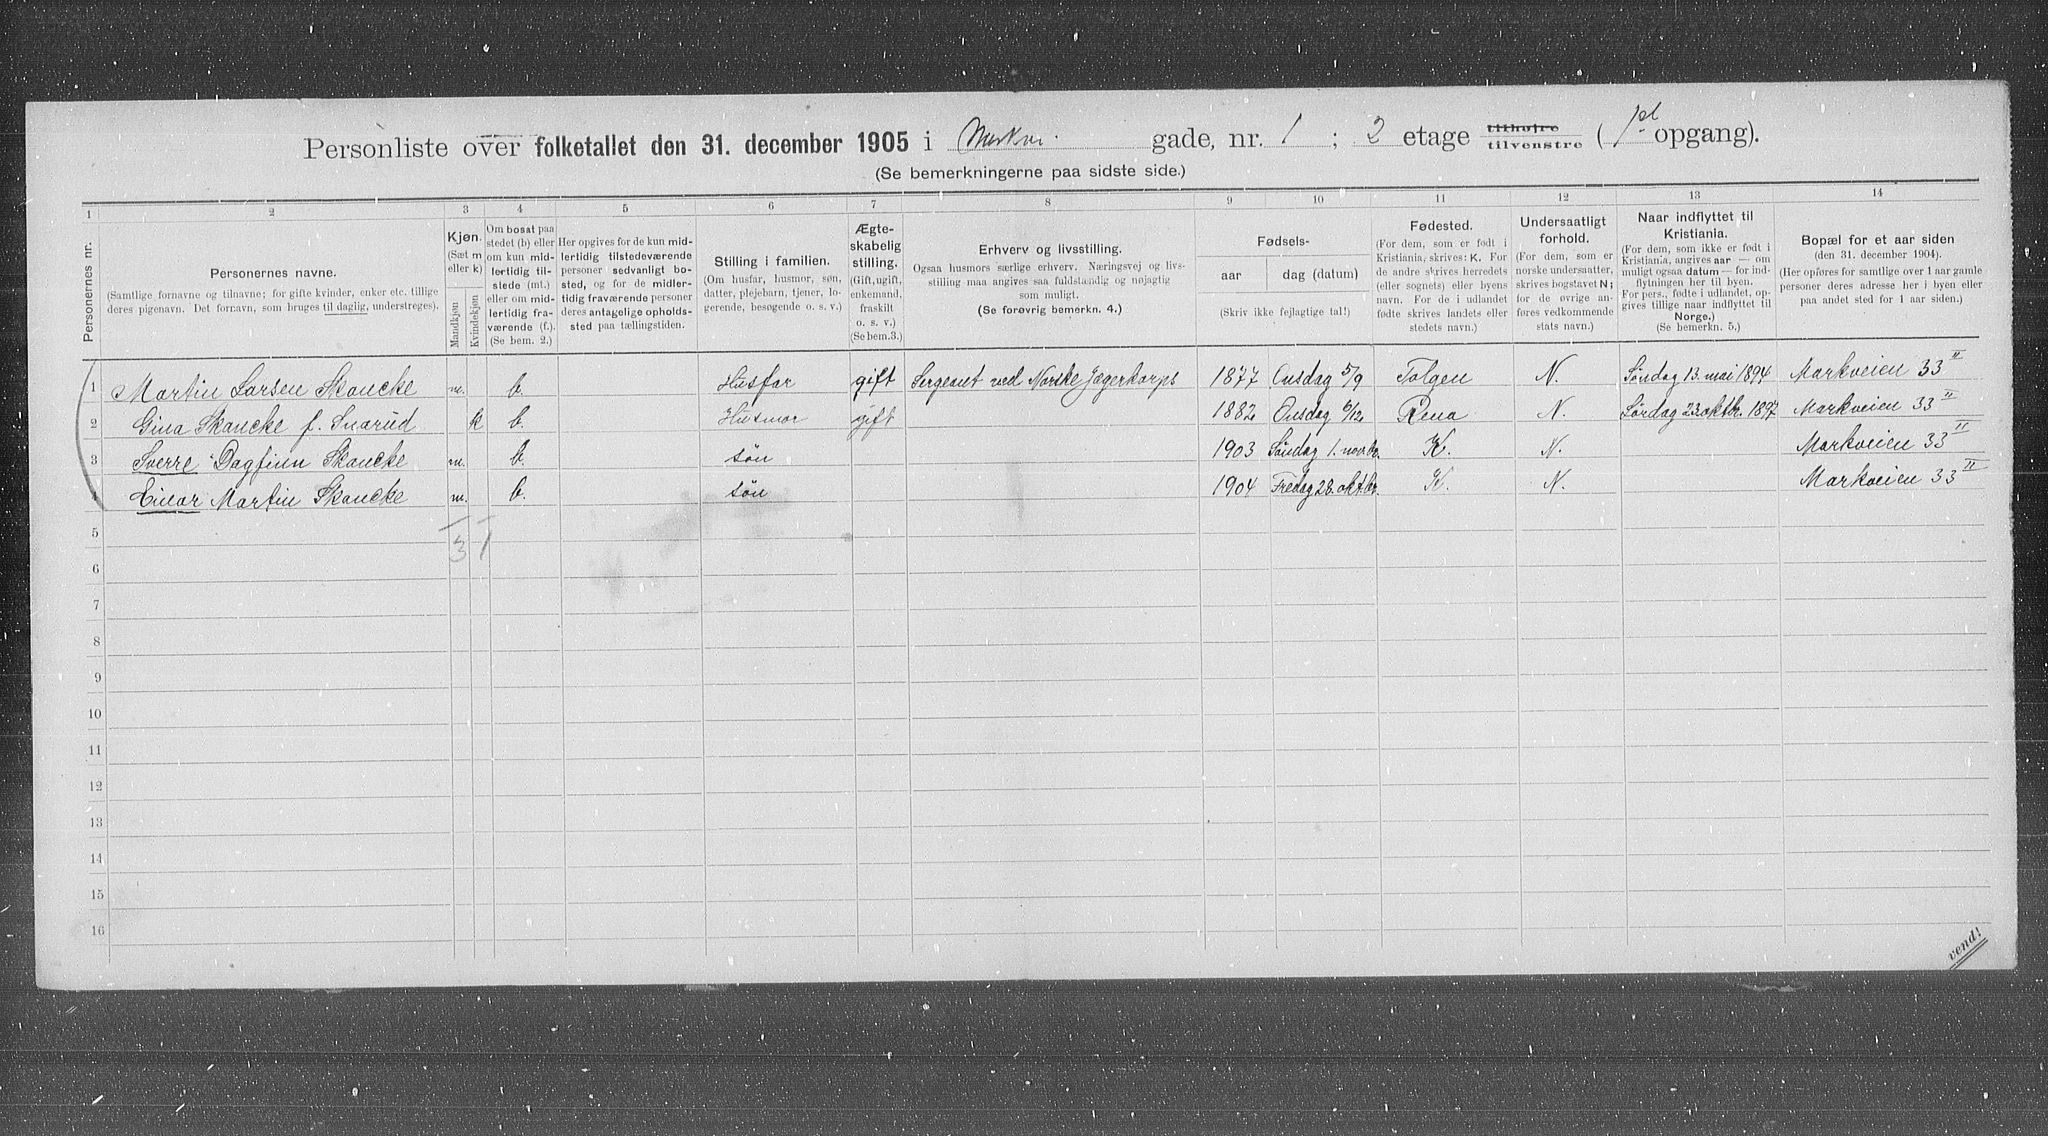 Personliste over folketallet den 31. december 1905 i Markvei. gade, nr. 1 ; 2 etage tilhøjre tilvenstre ( 1st opgang).
(Se bemerkningerne paa sidste side.)
1 2 3 4 5 6 7 8 9 10 11 12 13 14
Personernes nr.
Personernes navne.
(Samtlige fornavne og tilnavne; for gifte kvinder, enker etc. tillige
deres pigenavn. Det fornavn, som bruges til daglig, understreges).
Kjøn.
(Sæt m
eller k)
Mandkjøn
Kvindekjøn
Om bosat paa
stedet (b) eller
om kun mid-
lertidig til-
stede (mt.)
eller om mid-
lertidig fra-
værende (f.).
(Se bem. 2.)
Her opgives for de kun mid-
lertidig tilstedeværende
personer sedvanligt bo-
sted, og for de midler-
tidig fraværende personer
deres antagelige opholds-
sted paa tællingstiden.
Stilling i familien.
(Om husfar, husmor, søn,
datter, plejebarn, tjener, lo-
gerende, besøgende o. s. v.)
Ægte-
skabelig
stilling.
(Gift, ugift,
enkemand,
fraskilt
o. s. v.)
(Se bem.3.)
Erhverv og livsstilling.
Ogsaa husmors særlige erhverv. Næringsvej og livs-
stilling maa angives saa fuldstændig og nøjagtig
som muligt.
(Se forøvrig bemerkn. 4.)
Fødsels-
aar
dag (datum)
(Skriv ikke fejlagtige tal!)
Fødested.
(For dem, som er født i
Kristiania, skrives: K. For
de andre skrives herredets
(eller sognets) eller byens
navn. For de i udlandet
fødte skrives landets eller
stedets navn.)
Undersaatligt
forhold.
(For dem, som er
norske undersaatter,
skrives bogstavet N;
for de øvrige an-
føres vedkommende
stats navn.)
Naar indflyttet til
Kristiania.
(For dem, som ikke er født i
Kristiania, angives aar — om
muligt ogsaa datum — for ind-
flytningen her til byen.
For pers., fødte i udlandet, op-
gives tillige naar indflyttet til
Norge.)
(Se bemerkn. 5.)
Bopæl for et aar siden
(den 31. december 1904).
(Her opføres for samtlige over 1 aar gamle
personer deres adresse her i byen eller
paa andet sted for 1 aar siden.)
1 Martin Larsen Skancke m. b. Husfar gift Sergeant ved Norske Jægerkorps 1877 Onsdag 5/9 Tolgen N. Søndag 13. mai 1894 Markveien 33 II
2 Gina Skancke f. Snarud k b. Husmor gift 1882 Onsdag 6/12 Rena N. Lørdag 23. oktbr. 1897 Markveien 33 II
3 Sverre Dagfinn Skancke m. b. søn 1903 Søndag 1. novbr. K. N. Markveien 33 II
4 Einar Martin Skancke m. b. søn 1904 Fredag 28. oktbr. K. N. Markveien 33 II
3 1
5
6
7
8
9
10
11
12
13
14
15
16
vend!